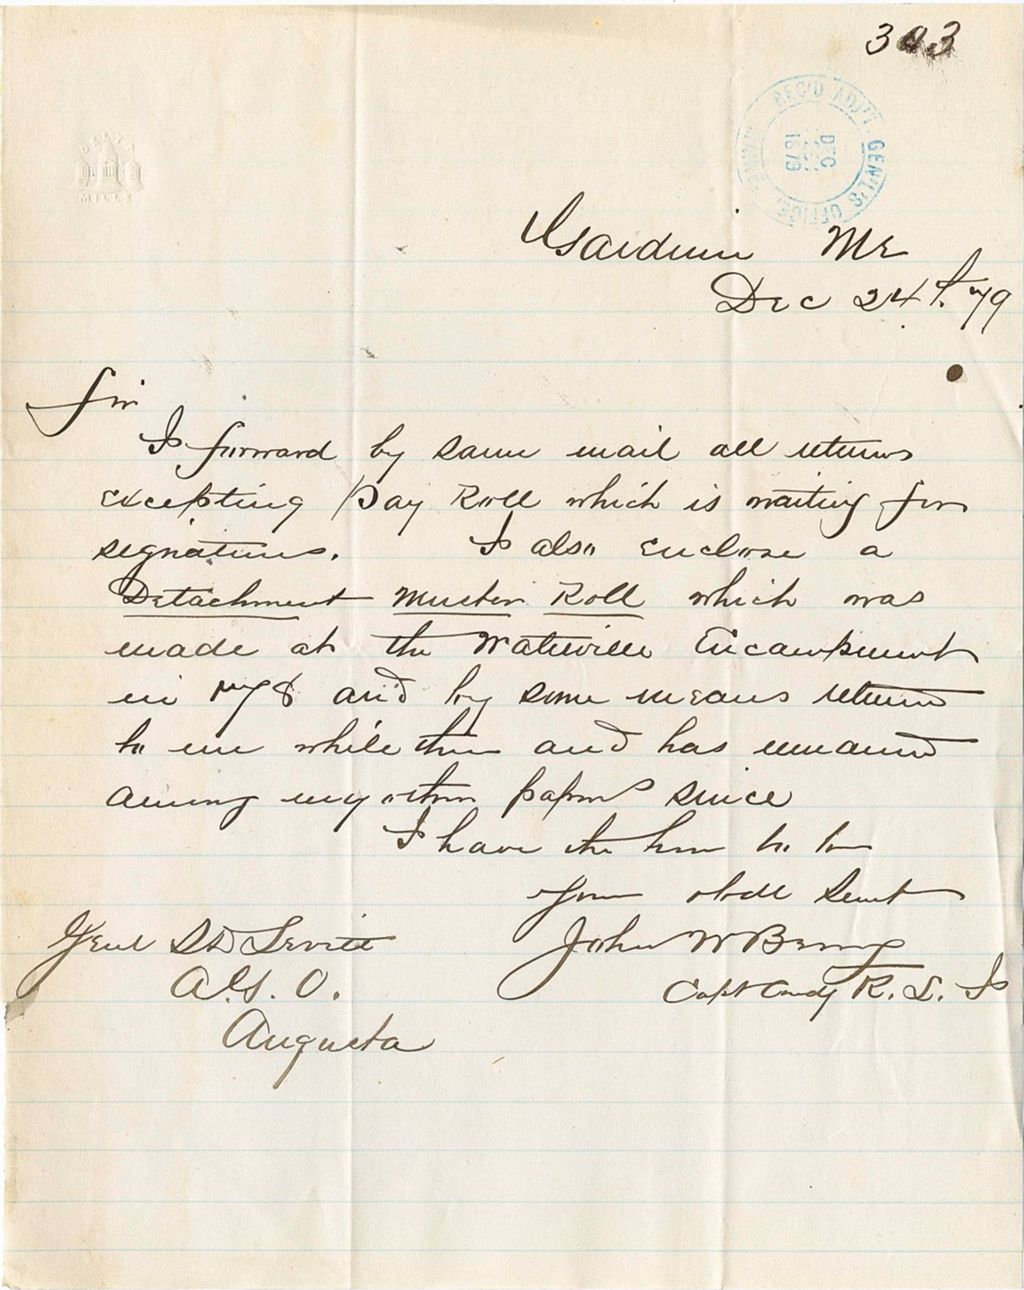 303
DELTA
MILLS
REC'D ADJ'T GEN'L'S OFFICE, MAINE
DEC
1879
Gardiner Me
Dec 24th '79
Sir
I forward by same mail all returns
excepting Pay Roll which is waiting for
signatures. I also enclose a
Detachment Muster Roll which was
made at the Waterville Encampment
in '78 and by some means returned
to me while there and has remained
among my other papers since
I have the honor to be
Your obdt Servt
John W Berry
Capt Comdg R. L. I
Genl S D Leavitt
A.G.O.
Augusta